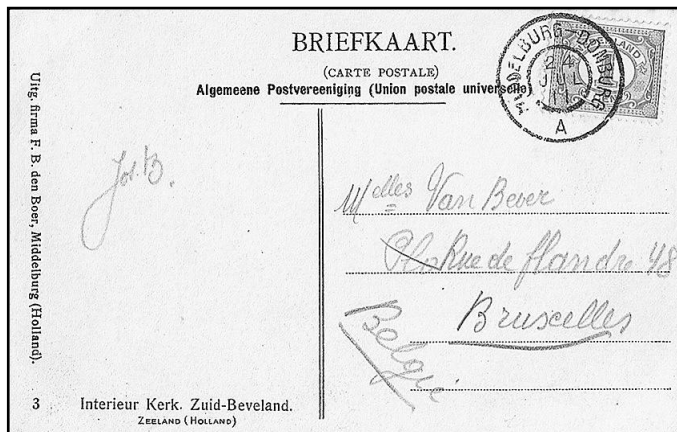 BRIEFKAART.
(CARTE POSTALE)
Algemeene Postvereeniging (Union postale universelle)
MIDDELBURG-DOMBURG
24
JUL
11
A
Uitg. firma F. B. den Boer, Middelburg (Holland).
Jos. B.
Mdelles Van Bever
Rue de flandre 48
Bruxelles
België
3 Interieur Kerk. Zuid-Beveland.
ZEELAND (HOLLAND)